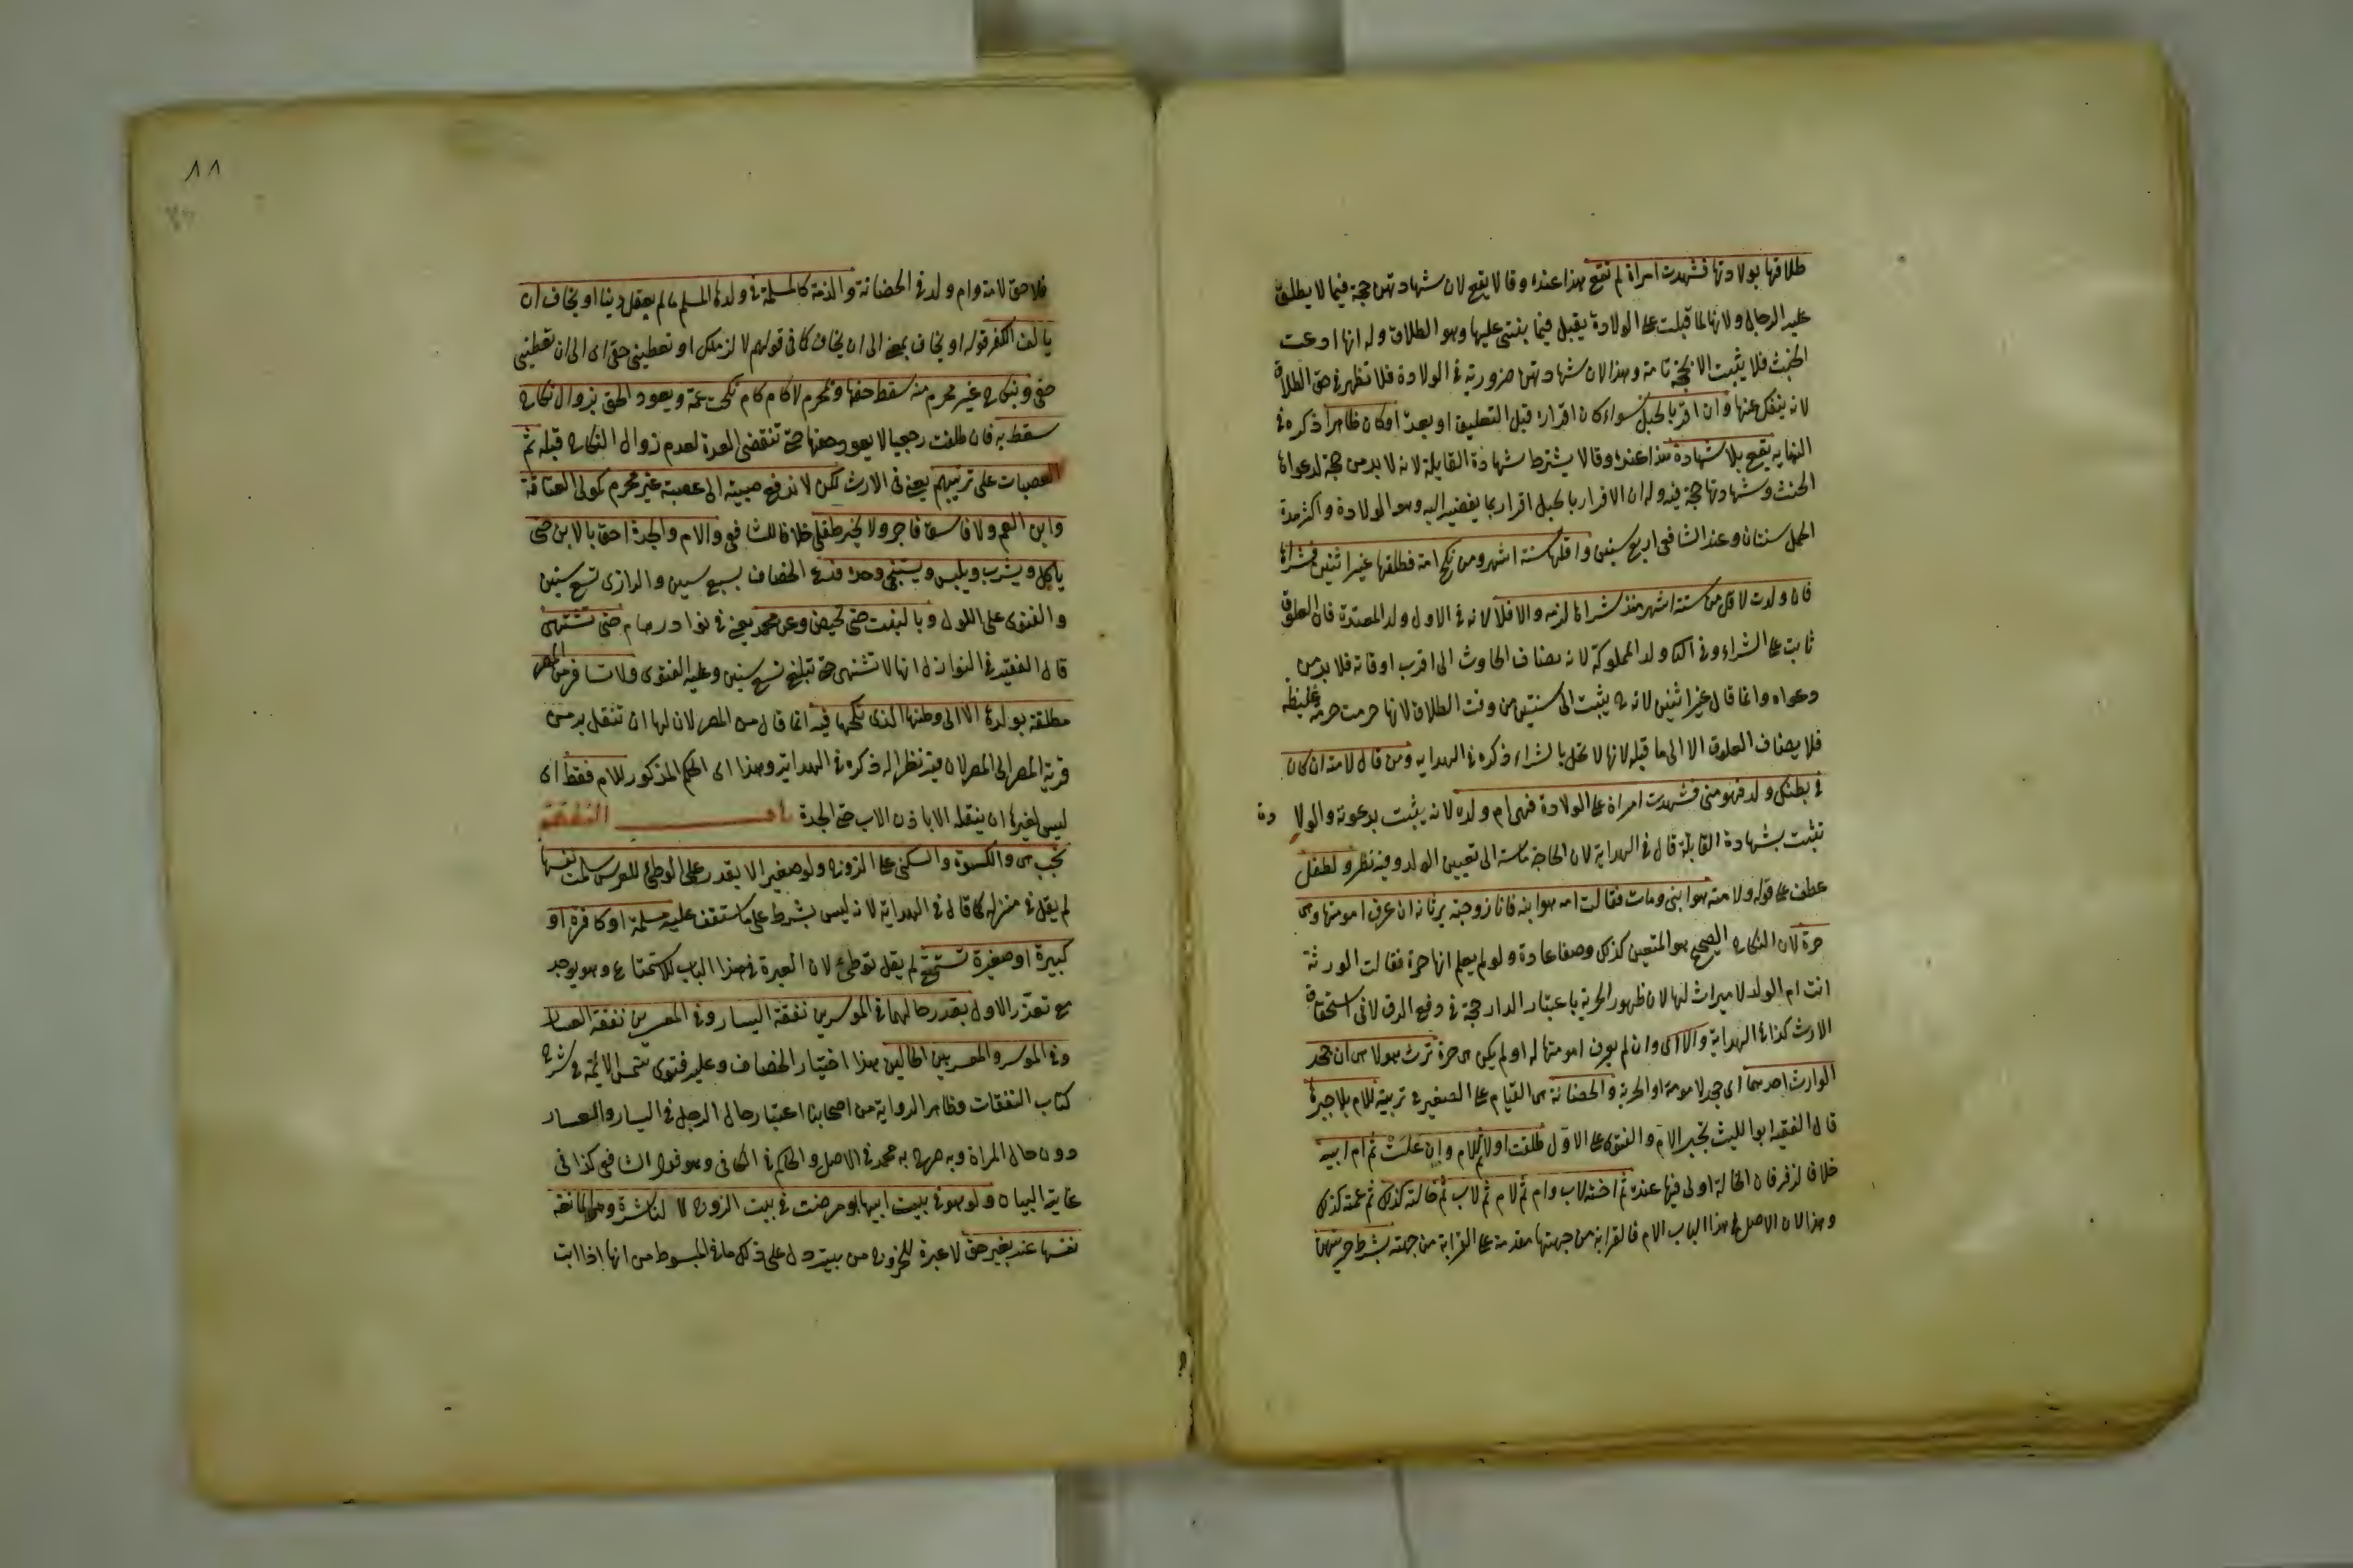 طلاقها بولادتها فشهدت امراة لم تقع هذا عنده وقالا يقع لان شهادتهن حجة فيما لا يطلع
عليه الرجال ولانها لما قبلت على الولادة يقبل فيما يبتنى عليها وهو الطلاق وله انها ادعت
الحنث فلا يثبت الا بحجة تامة وهذا لان شهادتهن ضرورية في الولادة فلا تظهر في حق الطلاق
لانه ينفك عنها وان اقر بالحبل سواء كان اقراره قبل التعليق او بعده او كان ظاهرا ذكره في
النهاية يقع بلا شهادة هذا عنده وقالا يشترط شهادة القابلة لانه لا بد من حجة لدعواها
الحنث وشهادتها حجة فيه وله ان الاقرار بالحبل اقرار بما يفضى اليه وهو الولادة واكثر مدة
الحمل سنتان وعند الشافعي اربع سنين واقلها ستة اشهر ومن نكح امة فطلقها غير اثنين فشراها
فان ولدت لاقل من ستة اشهر منذ شراها لزمه والا فلا لانه في الاول ولد المعتدة فان العلوق
ثابت على الشراء وفي الثا ولد المملوكة لانه يضاف الحادث الى اقرب اوقاته فلا بد من
دعواه وانما قال غير اثنين لانه ح يثبت الى سنتين من وقت الطلاق لانها حرمت حرمة غليظة
فلا يضاف العلوق الا الى ما قبله لانها لا تحل بالشراء ذكره في الهداية ومن قال لامته ان كان
في بطنك ولد فهو منى فشهدت امراة على الولادة فهى ام ولده لانه يثبت بدعوته والولا دة
تثبت بشهادة القابلة قال في الهداية لان الحاجة ماسة الى تعيين الولد وفيه نظر ولطفل
عطف على قوله ولامته هو ابنى ومات فقالت امه هو ابنه فانا زوجته يرثانه ان عرف امومتها وهى
حرة لان النكاح الصحيح هو المتعين كذلك وصفا عادة ولو لم يعلم انها حرة فقالت الورثة
انت ام الولد لا ميراث لها لان ظهور الحرية باعتبار الدار حجة في دفع الرق لا فى استحقاق
الارث كذا في الهداية والا اى وان لم يعرف امومتها له او لم يكن هى حرة ترث هو لا هى ان جحد
الوارث احدهما اى جحد لامومة او الحرية والحضانة هى القيام على الصغير في تربيته للام بلا جبرها
قال الفقيه ابو الليث تجبر الام والفتوى على الاول طلقت اولا ثم للام وان علت ثم ام ابيه
خلافا لزفر فان الخالة اولى فيها عنده ثم اخته لاب وام ثم لام ثم لاب ثم خالته كذلك ثم عمته كذلك
وهذا لان الاصل في هذا الباب الام فالقرابة من جهتها مقدمة على القرابة من جهته بشرط حريتهن
٨٨
فلا حق لامة وام ولد في الحضانة والذمية كالمسلمة في ولدها المسلم ما لم يعقل دينا او يخاف ان
يالف الكفر قوله او يخاف بمعنى الى ان يخاف كما فى قولهم لالزمنك او تعطينى حقى اى الى ان تعطينى
حقى وبنكاح غير محرم منه سقط حقها وبمحرم لا كام كام نكحت عمه ويعود الحق بزوال نكاح
سقط به فان طلقت رجعيا لا يعود حقها حتى تنقضى العدة لعدم زوال النكاح قبله ثم
العصبات على ترتيبهم يعنى فى الارث لكن لا تدفع صبية الى عصبة غير محرم كمولى العتاقة
وابن العم ولا فاسق فاجر ولا يخير طفل خلافا للشافعي والام والجدة احق بالابن حتى
ياكل ويشرب ويلبس ويستنجى وحده قدره الخصاف بسبع سنين والرازى تسع سنين
والفتوى على الاول وبالبنت حتى تحيض وعن محمد يعنى في نوادر هشام حتى تشتهى
قال الفقيه في النوازل انها لا تشتهى حتى تبلغ تسع سنين وعليه الفتوى ولا تسافر من المصر
مطلقة بولدها الا الى وطنها الذى نكحها فيه انما قال من المصر لان لها ان تنتقل به من
قرية المصر الى المصر لان فيه نظرا له ذكره في الهداية وهذا اى الحكم المذكور للام فقط اى
ليس لغيرها ان ينقله الا باذن الاب حتى الجدة باب النفقة
تجب هى والكسوة والسكنى على الزوج ولو صغيرا لا يقدر على الوطئ للعرس سلمت نفسها
لم يقل في منزله كما قال في الهداية لانه ليس بشرط على ما ستقف عليه مسلمة او كافرة او
كبيرة او صغيرة تستمتع لم يقل توطئ لان العبرة في هذا الباب للاستمتاع وهو يوجد
مع تعذر الاول بقدر حالهما في الموسرين نفقة اليسار وفي المعسرين نفقة العسار
وفي الموسر والمعسر بين الحالين هذا اختيار الخصاف وعليه فتوى شمس الائمة في شرح
كتاب النفقات وظاهر الرواية من اصحابنا اعتبار حال الرجل في اليسار والعسار
دون حال المراة وبه صرح به محمد في الاصل والحاكم في الكافى وهو قول الشافعى كذا فى
غاية البيان ولو هو في بيت ابيها او مرضت في بيت الزوج لا لناشزة ومانعة
نفسها عنه بغير حق لا عبرة للخروج من بيته دل على ذلك ما في المبسوط من انها اذا ابت